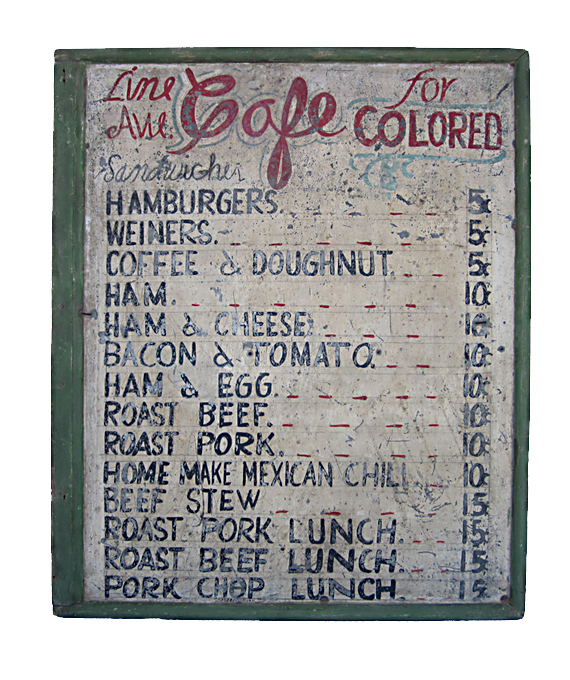 Line Ave. Cafe for COLORED
Sandwiches
HAMBURGERS. 5¢
WEINERS. 5¢
COFFEE & DOUGHNUT. 5¢
HAM. 10¢
HAM & CHEESE. 10¢
BACON & TOMATO. 10¢
HAM & EGG. 10¢
ROAST BEEF. 10¢
ROAST PORK. 10¢
HOME MAKE MEXICAN CHILI 10¢
BEEF STEW 15¢
ROAST PORK LUNCH. 15¢
ROAST BEEF LUNCH. 15¢
PORK CHOP LUNCH. 15¢